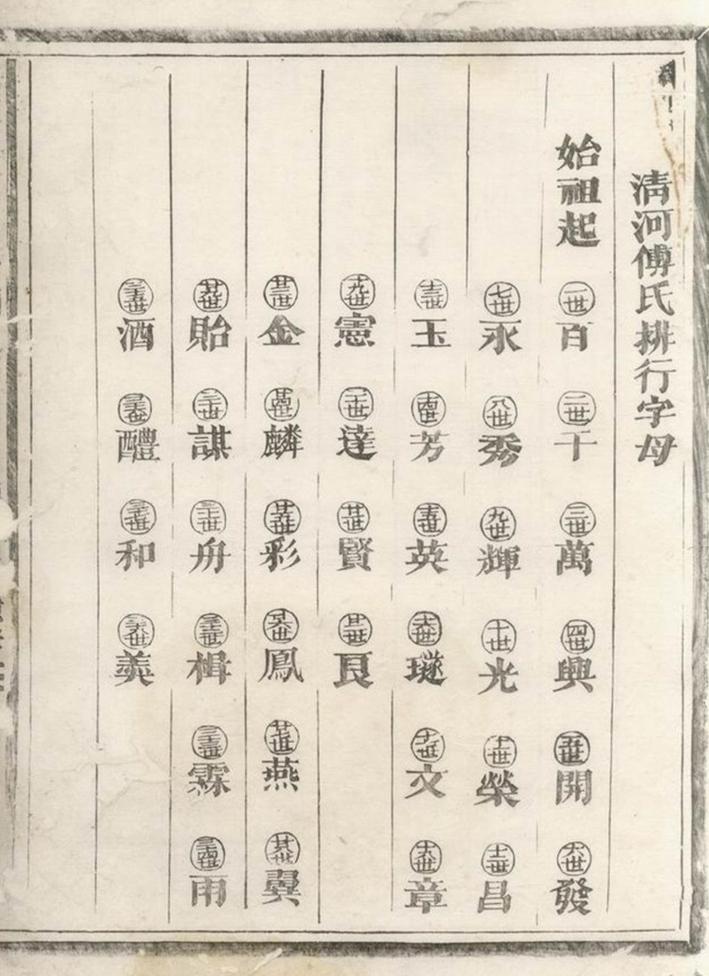 清河傅氏排行字母
始祖起 一世百 二世千 三世萬 四世興 五世開 六世發
七世永 八世秀 九世輝 十世光 十一世榮 十二世昌
十三世玉 十四世芳 十五世英 十六世璲 十七世文 十八世章
十九世憲 二十世達 廿一世賢 廿二世良
廿三世金 廿四世麟 廿五世彩 廿六世鳳 廿七世燕 廿八世翼
廿九世貽 三十世謀 三十一世舟 三十二世楫 三十三世霖 三十四世雨
三十五世酒 三十六世醴 三十七世和 三十八世羹